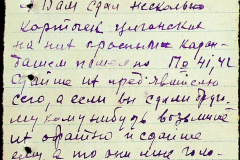 Я Вам сдал несколько
карточек цыганских
на них простым каран-
дашом помечено По 41/42
сдайте их пред'явителю
сего, а если вы сдали друго-
му кому нибудь возьмите
их обратно и сдайте
ему а то они мне голо-